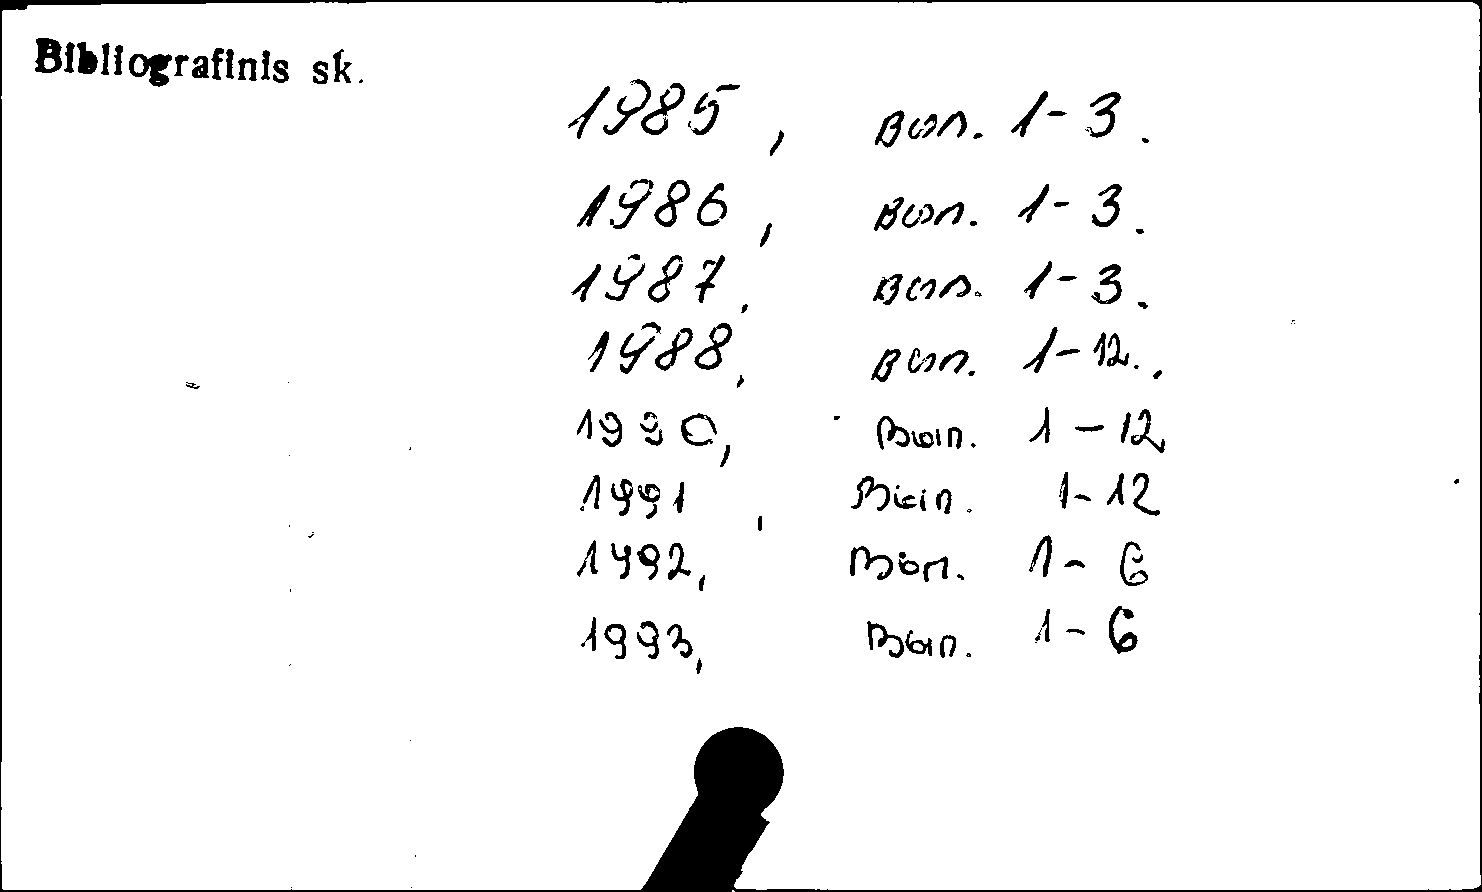 Bibliografinis sk.
1985, вып. 1-3.
1986, вып. 1-3.
1987, вып. 1-3.
1988, вып. 1-12.,
1990, вып. 1-12
1991, вып. 1-12
1992, вып. 1-6
1993, вып. 1-6